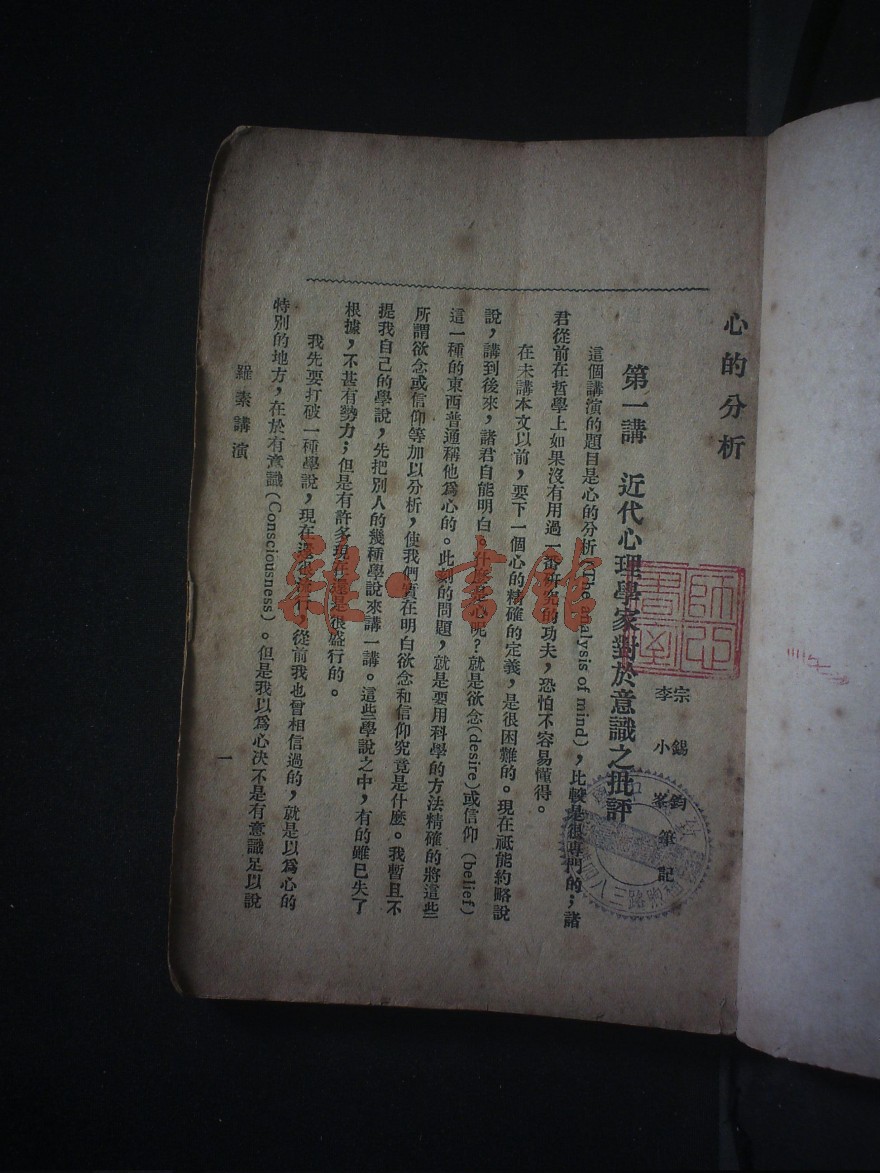 心的分析
宗錫鈞
李小峯
筆記
第一講　近代心理學家對於意識之批評
這個講演的題目是心的分析(The analysis of mind)，比較是很專門的；諸
君從前在哲學上如果沒有用過一番研究的功夫，恐怕不容易懂得。
在未講本文以前，要下一個心的精確的定義，是很困難的。現在祗能約略說
說，講到後來，諸君自能明白。什麼是心呢？就是欲念(desire)或信仰(belief)
這一種的東西普通稱他爲心的。此刻的問題，就是要用科學的方法精確的將這些
所謂欲念或信仰等加以分析，使我們實在明白欲念和信仰究竟是什麼。我暫且不
提我自己的學說，先把別人的幾種學說來講一講。這些學說之中，有的雖已失了
根據，不甚有勢力；但是有許多現在還是很盛行的。
我先要打破一種學說，現在還也盛行，從前我也曾相信過的，就是以爲心的
特別的地方，在於有意識(Consciousness)。但是我以爲心決不是有意識足以說
羅素講演
一
雜·書館